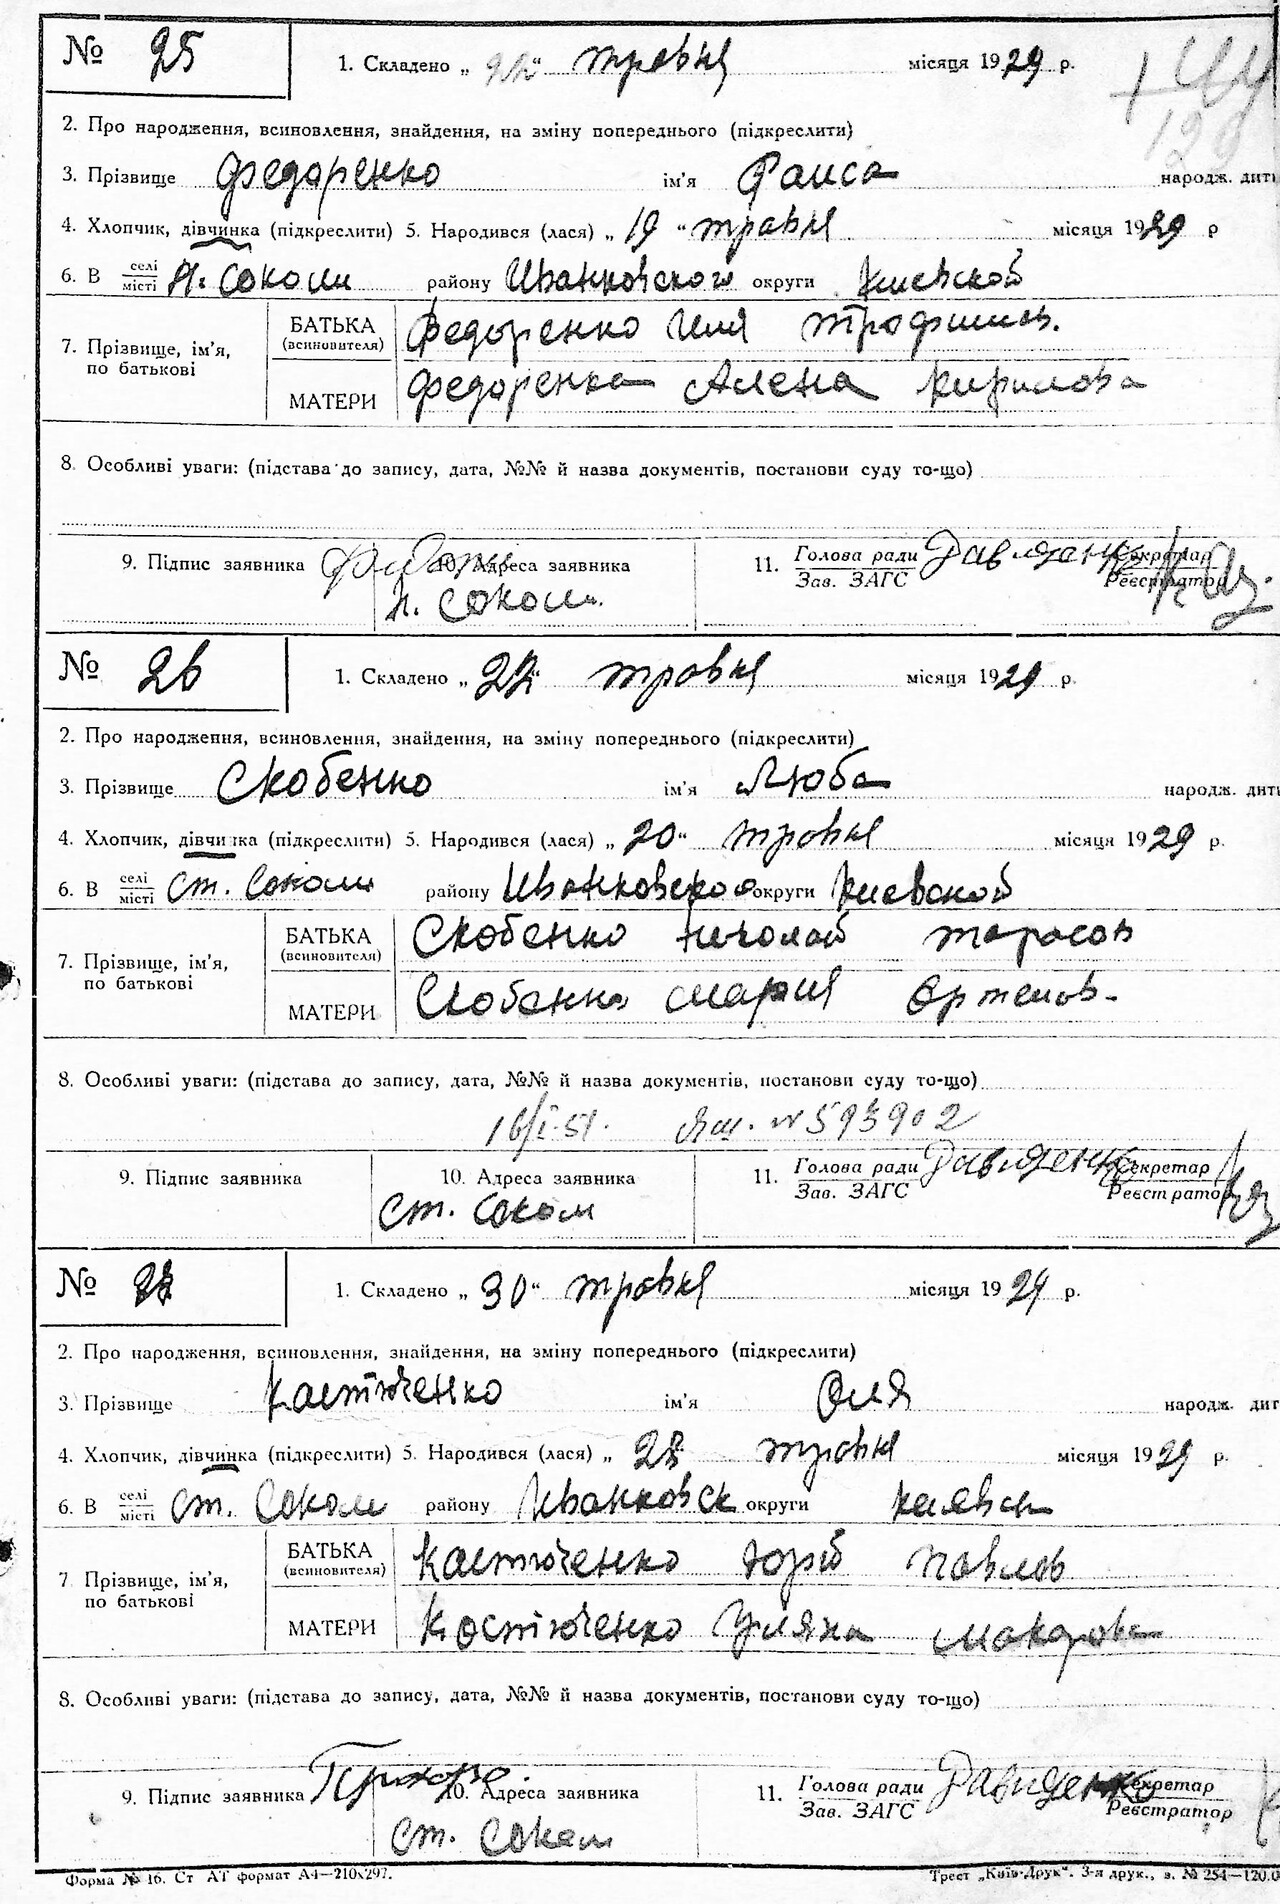 № 25 1. Складено „ 22 “ травня місяця 1929 р.
2. Про народження, всиновлення, знайдення, на зміну попереднього (підкреслити)
3. Прізвище Федоренко ім'я Раиса народж. дит
4. Хлопчик, дівчинка (підкреслити) 5. Народився (лася) „ 19 “ травня місяця 1929 р
6. В селі місті Н. Соколи району Иванковского округи Киевской
7. Прізвище, ім'я, по батькові БАТЬКА (всиновителя) Федоренко Илля Трофимов.
МАТЕРИ Федоренка Алена Кирилова
8. Особливі уваги: (підстава до запису, дата, №№ й назва документів, постанови суду то-що)
9. Підпис заявника 10. Адреса заявника 11. Голова ради Зав. ЗАГС Давиденко Секретар Реєстратор
Н. Соколи.
№ 26 1. Складено „ 22 “ травня місяця 1929 р.
2. Про народження, всиновлення, знайдення, на зміну попереднього (підкреслити)
3. Прізвище Скобенко ім'я Люба народж. дит
4. Хлопчик, дівчинка (підкреслити) 5. Народився (лася) „ 20 “ травня місяця 1929 р.
6. В селі місті Ст. Соколи району Иванковского округи Киевской
7. Прізвище, ім'я, по батькові БАТЬКА (всиновителя) Скобенко Николай Тарасов
МАТЕРИ Скобенко Мария Артемов.
8. Особливі уваги: (підстава до запису, дата, №№ й назва документів, постанови суду то-що)
16/I-51. № 593902
9. Підпис заявника 10. Адреса заявника 11. Голова ради Зав. ЗАГС Давиденко Секретар Реєстратор
Ст. Соколи
№ 27 1. Складено „ 30 “ травня місяця 1929 р.
2. Про народження, всиновлення, знайдення, на зміну попереднього (підкреслити)
3. Прізвище Костюченко ім'я Оля народж. дит
4. Хлопчик, дівчинка (підкреслити) 5. Народився (лася) „ травня місяця 1929 р.
6. В селі місті Ст. Соколи району Иванковск округи
7 Прізвище, ім'я, по батькові БАТЬКА (всиновителя) Костюченко Юрій Павлов
МАТЕРИ Костюченко Уляна Макарова
8. Особливі уваги: (підстава до запису, дата, №№ й назва документів, постанови суду то-що)
9. Підпис заявника 10. Адреса заявника 11. Голова ради Зав. ЗАГС Давиденко Секретар Реєстратор
Ст. Соколи
Форма № 16. Ст АТ формат А4—210х297. Трест „Київ-Друк“. 3-я друк., з. № 254—120.0